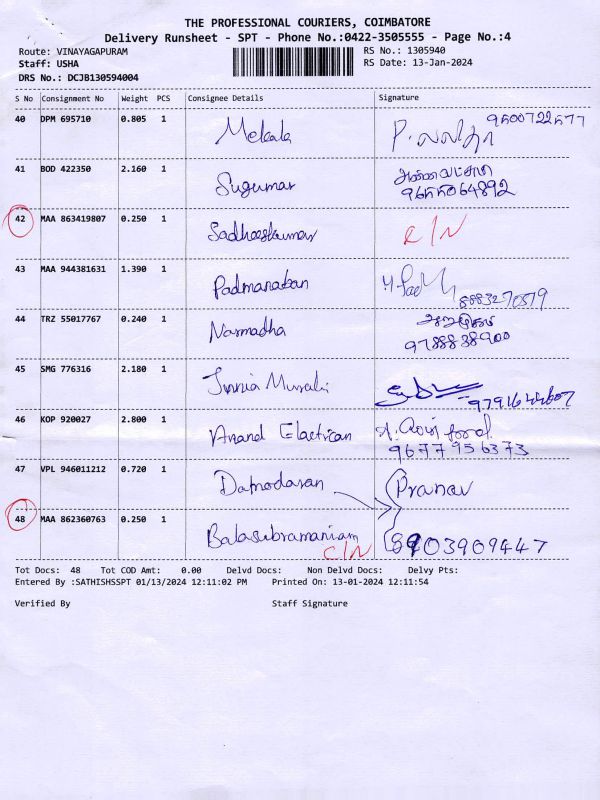 THE PROFESSIONAL COURIERS, COIMBATORE
Delivery Runsheet - SPT - Phone No.:0422-3505555 - Page No.:4
Route: VINAYAGAPURAM RS No.: 1305940
Staff: USHA RS Date: 13-Jan-2024
DRS No.: DCJB130594004
S No Consignment No Weight PCS Consignee Details Signature
40 DPM 695710 0.805 1 Mekala
41 BOD 422350 2.160 1 Sugumar
42 MAA 863419807 0.250 1 Sadheeskumar C/N
43 MAA 944381631 1.390 1 Padmanaban
44 TRZ 55017767 0.240 1 Narmadha
9788838900
45 SMG 776316 2.180 1 Murali
46 KOP 920027 2.800 1 Anand Electrican
9677956373
47 VPL 946011212 0.720 1 Damodaran Pranav
48 MAA 862360763 0.250 1 Balasubramaniam C/N 8903909447
Tot Docs: 48 Tot COD Amt: 0.00 Delvd Docs: Non Delvd Docs: Delvy Pts:
Entered By :SATHISHSSPT 01/13/2024 12:11:02 PM Printed On: 13-01-2024 12:11:54
Verified By Staff Signature